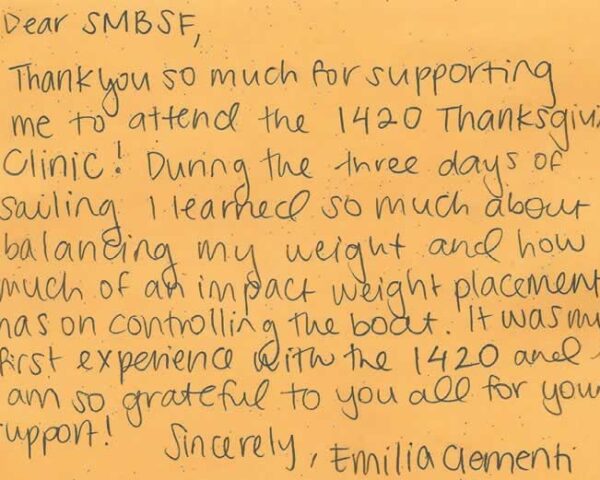 Dear SMBSF,
Thank you so much for supporting
me to attend the 1420 Thanksgivi
Clinic! During the three days of
sailing I learned so much about
balancing my weight and how
much of an impact weight placement
has on controlling the boat. It was m
first experience with the 1420 and
am so grateful to you all for you
upport!
Sincerely, Emilia Clementi